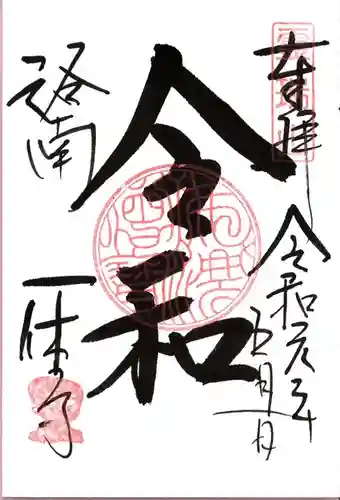 奉拝
令和元年
五月一日
令和
洛南
一休寺